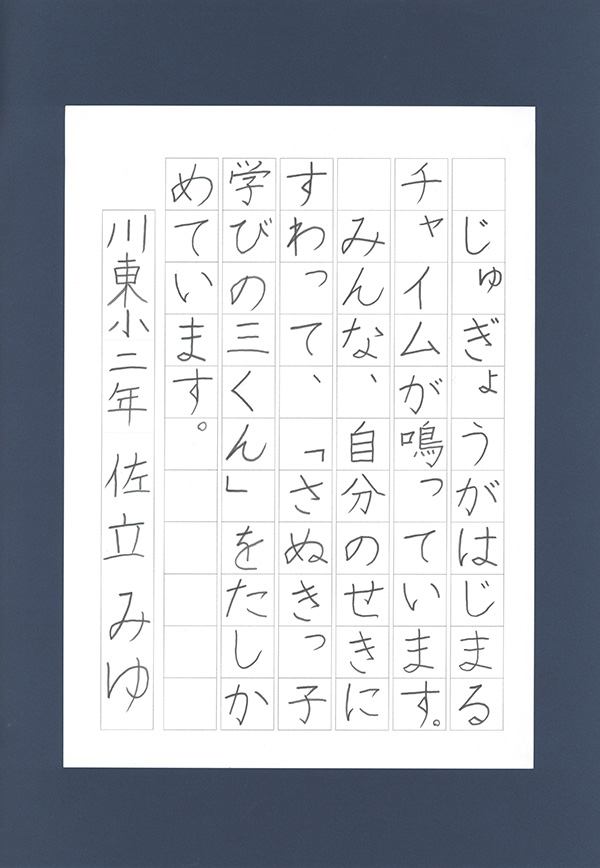 じゅぎょうがはじまる
チャイムが鳴っています。
みんな、自分のせきに
すわって、「さぬきっ子
学びの三くん」をたしか
めています。
川東小二年 佐立 みゆ